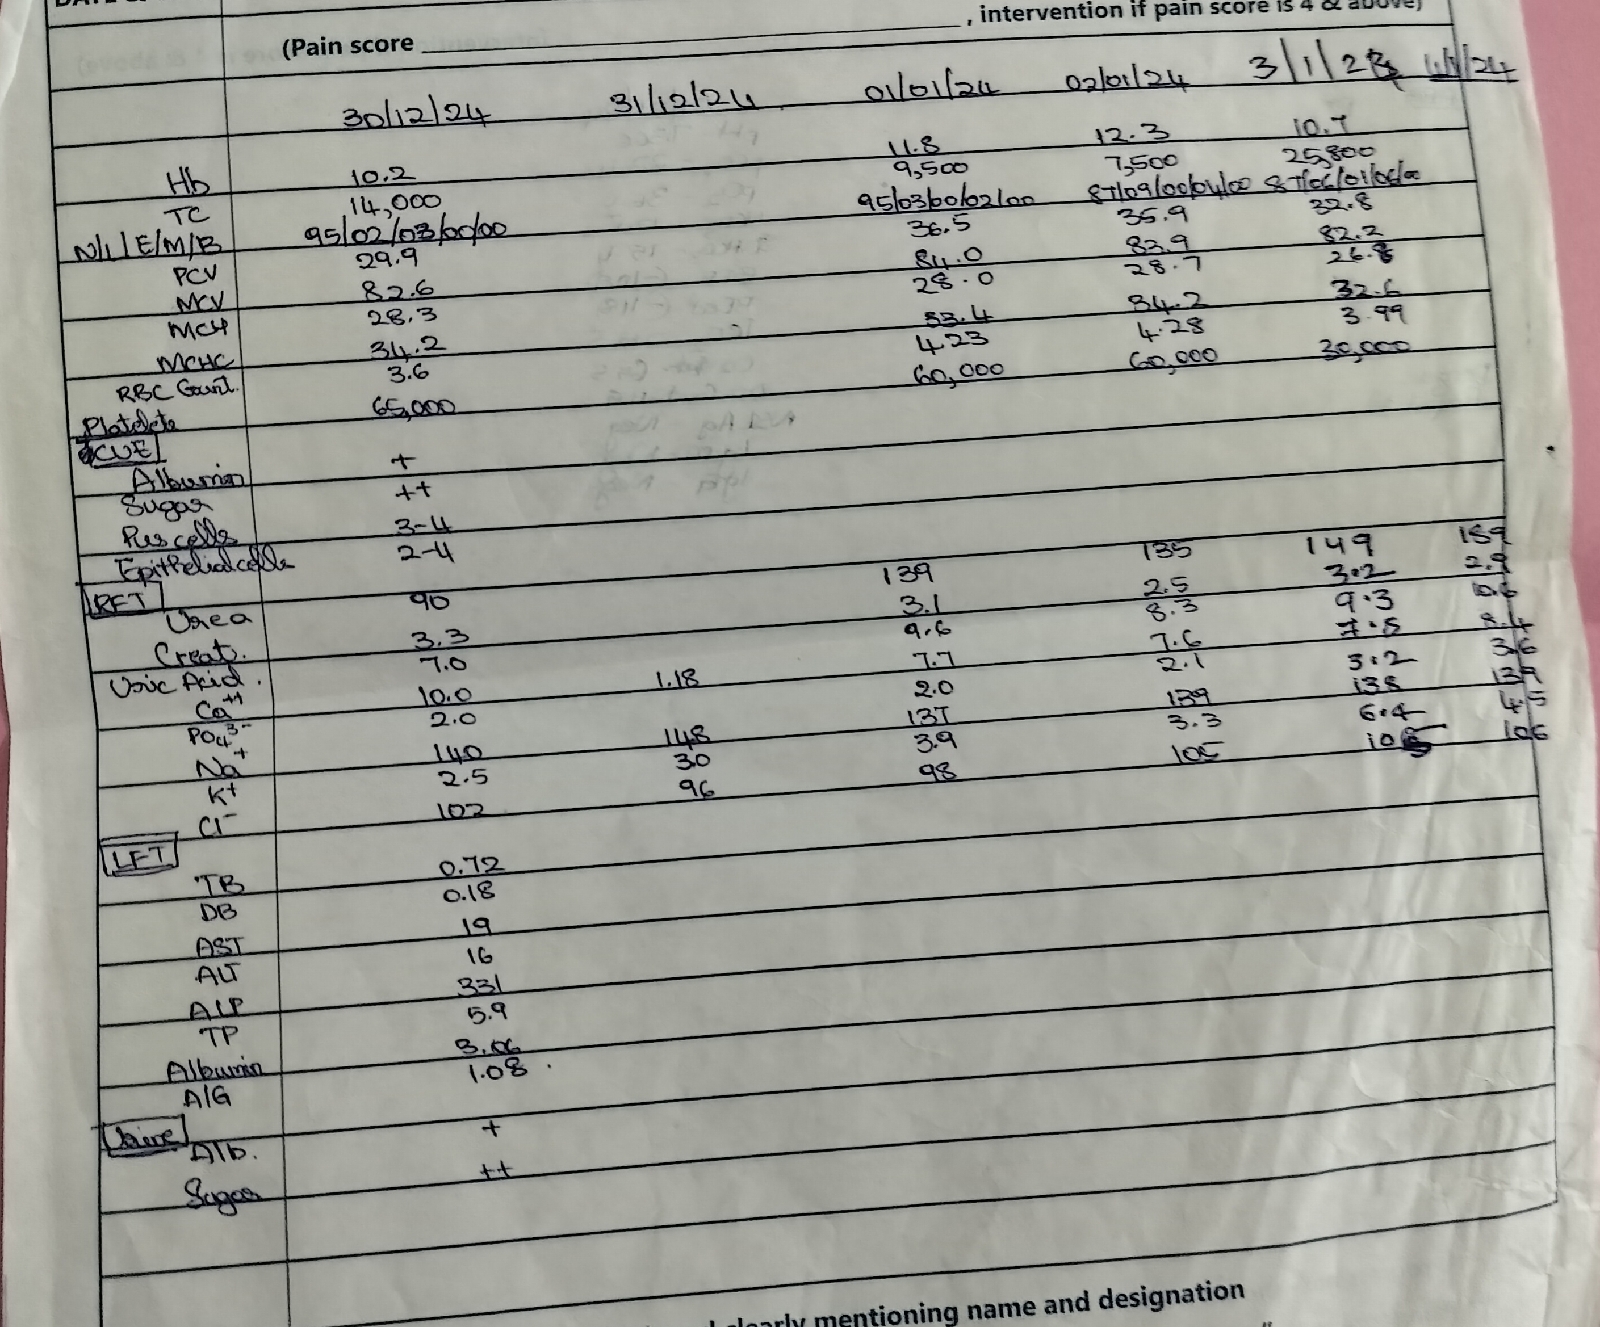 , intervention if pain score is 4 & above)
(Pain score
30/12/24 31/12/24 01/01/24 02/01/24 3/1/24 /24
Hb 10.2 11.8 12.3 10.7
TC 14,000 9,500 7,500 25,800
N/L/E/M/B 95/02/03/00/00 95/03/00/02/00 87/09/00/04/00 87/06/01/06/00
PCV 29.9 36.5 35.9 32.8
MCV 82.6 84.0 83.9 82.2
MCH 28.3 28.0 28.7 26.8
MCHC 34.2 33.4 34.2 32.6
RBC Count. 3.6 4.23 4.28 3.99
Platelete 65,000 60,000 60,000 30,000
CUE
Albumin +
Sugar ++
Pus cells 3-4
Epithelial cells 2-4
RFT
Urea 90 139 135 149 189
Creat. 3.3 3.1 2.5 3.2 2.9
Uric Acid. 7.0 9.6 8.3 9.3 10.6
Ca++ 10.0 1.18 7.7 7.6 7.5 8.4
PO4 3- 2.0 2.0 2.1 3.2 3.6
Na+ 140 148 137 139 138 139
K+ 2.5 30 3.9 3.3 6.4 4.5
Cl- 102 96 98 105 105 106
LFT
TB 0.72
DB 0.18
AST 19
ALT 16
ALP 331
TP 5.9
Albumin 3.06
A/G 1.08 .
Urine
Alb. +
Sugar ++
clearly mentioning name and designation